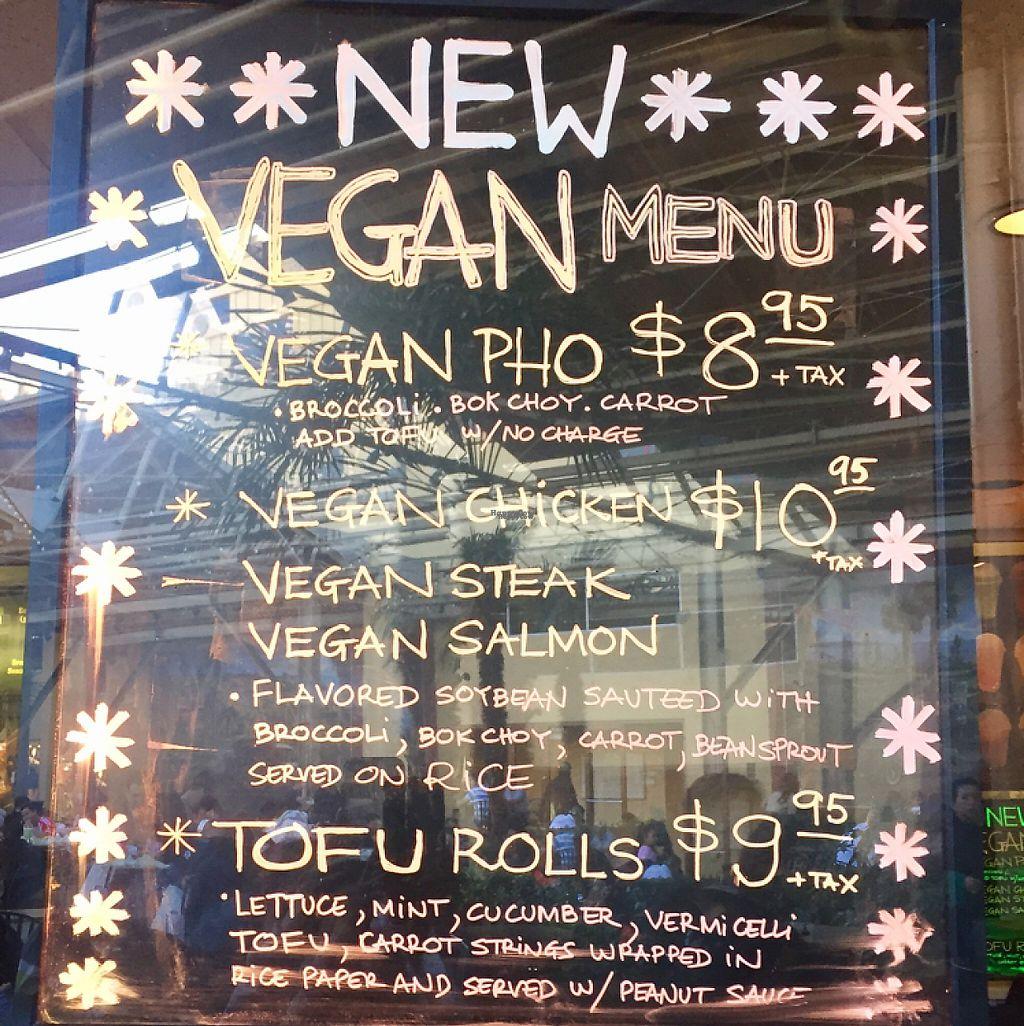 NEW
VEGAN MENU
VEGAN PHO $8.95
+ TAX
• BROCCOLI • BOK CHOY. CARROT
ADD TOFU W/NO CHARGE
* VEGAN CHICKEN $10.95
+TAX
VEGAN STEAK
VEGAN SALMON
• FLAVORED SOYBEAN SAUTEED WITH
BROCCOLI, BOK CHOY, CARROT, BEANSPROUT
SERVED ON RICE
* TOFU ROLLS $9.95
+TAX
• LETTUCE, MINT, CUCUMBER, VERMICELLI
TOFU, CARROT STRINGS WRAPPED IN
RICE PAPER AND SERVED W/ PEANUT SAUCE